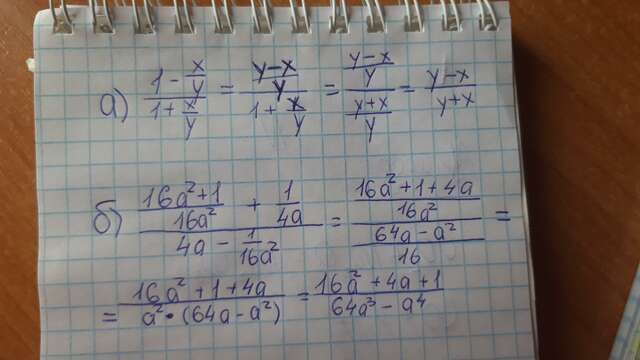 а) (1 - x/y)/(1 + x/y) = ((y-x)/y)/(1 + x/y) = ((y-x)/y)/((y+x)/y) = (y-x)/(y+x)
б) ((16a²+1)/(16a²) + 1/(4a))/(4a - 1/(16a²)) = ((16a²+1+4a)/(16a²))/((64a-a²)/16) =
= (16a²+1+4a)/(a²•(64a-a²)) = (16a²+4a+1)/(64a³-a⁴)